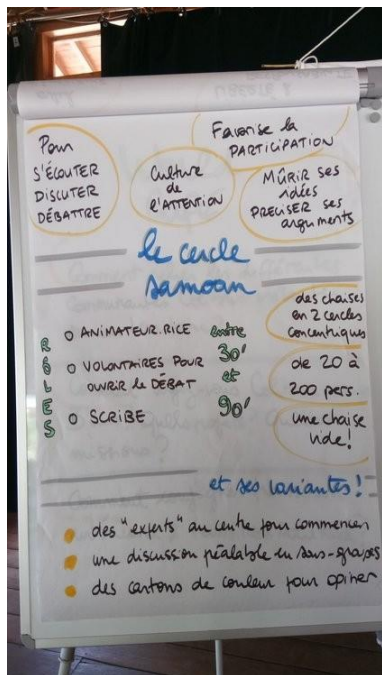 Pour
S'ÉCOUTER
DISCUTER
DÉBATTRE
Culture
de
l'ATTENTION
Favorise la
PARTICIPATION
MÛRIR SES
idées
PRÉCISER SES
arguments
le cercle
samoan
RÔLES
o ANIMATEUR.RICE
o VOLONTAIRES POUR
OUVRIR le DÉBAT
o SCRIBE
entre
30'
et
90'
des chaises
en 2 cercles
concentriques
de 20 à
200 pers.
une chaise
vide!
et ses variantes!
des "experts" au centre pour commencer
une discussion préalable en sous-groupes
des cartons de couleur pour opiner